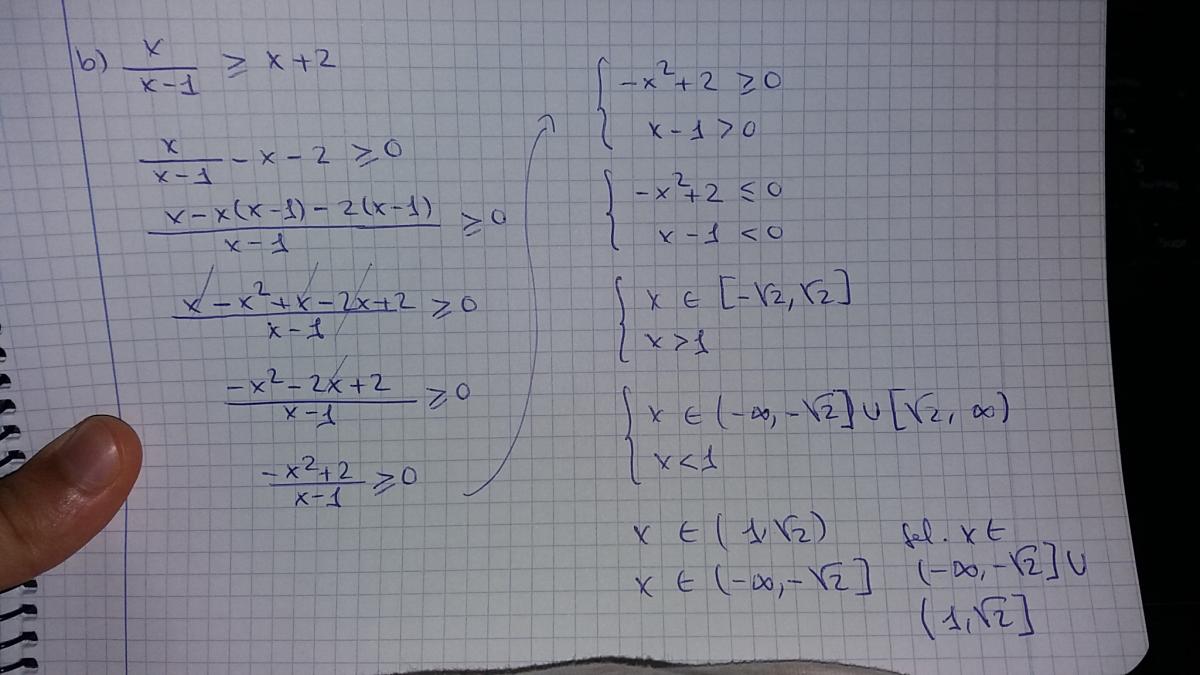 b) x/(x-1) ≥ x+2
x/(x-1) - x - 2 ≥ 0
(x - x(x-1) - 2(x-1))/(x-1) ≥ 0
(x - x² + x - 2x + 2)/(x-1) ≥ 0
(-x² - 2x + 2)/(x-1) ≥ 0
(-x² + 2)/(x-1) ≥ 0
{ -x² + 2 ≥ 0
x - 1 > 0
{ -x² + 2 ≤ 0
x - 1 < 0
{ x ∈ [-√2, √2]
x > 1
{ x ∈ (-∞, -√2] ∪ [√2, ∞)
x < 1
x ∈ (1, √2)
x ∈ (-∞, -√2]
Sol. x ∈
(-∞, -√2] ∪
(1, √2]